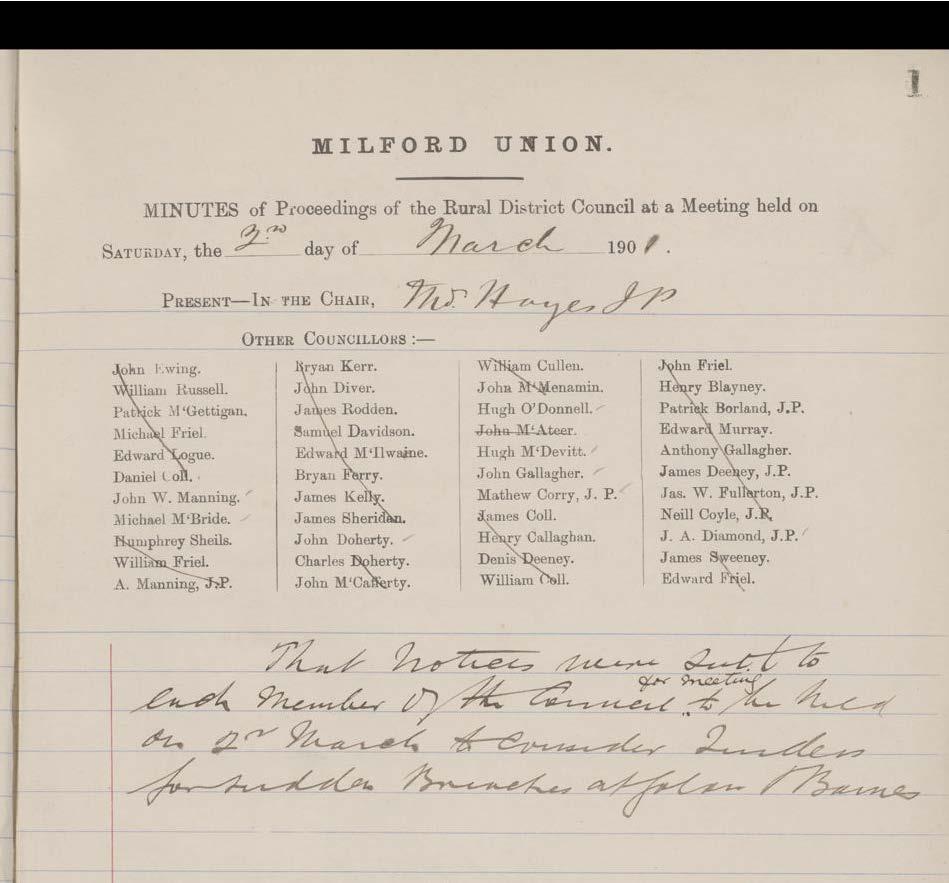 1
MILFORD UNION.
MINUTES of Proceedings of the Rural District Council at a Meeting held on
SATURDAY, the 2nd day of March 1901.
PRESENT—IN THE CHAIR, Thos. Hayes JP
OTHER COUNCILLORS :—
John Ewing.
William Russell.
Patrick M'Gettigan.
Michael Friel.
Edward Logue.
Daniel Coll.
John W. Manning.
Michael M'Bride.
Humphrey Sheils.
William Friel.
A. Manning, J.P.
Bryan Kerr.
John Diver.
James Rodden.
Samuel Davidson.
Edward M'Ilwaine.
Bryan Ferry.
James Kelly.
James Sheridan.
John Doherty.
Charles Doherty.
John M'Cafferty.
William Cullen.
John M'Menamin.
Hugh O'Donnell.
John M'Ateer.
Hugh M'Devitt.
John Gallagher.
Mathew Corry, J. P.
James Coll.
Henry Callaghan.
Denis Deeney.
William Coll.
John Friel.
Henry Blayney.
Patrick Borland, J.P.
Edward Murray.
Anthony Gallagher.
James Deeney, J.P.
Jas. W. Fullerton, J.P.
Neill Coyle, J.P.
J. A. Diamond, J.P.
James Sweeney.
Edward Friel.
That Notices were sent to
each Member of the Council for meeting to be held
on 2nd March to consider Tenders
for sudden Breaches at Barnes